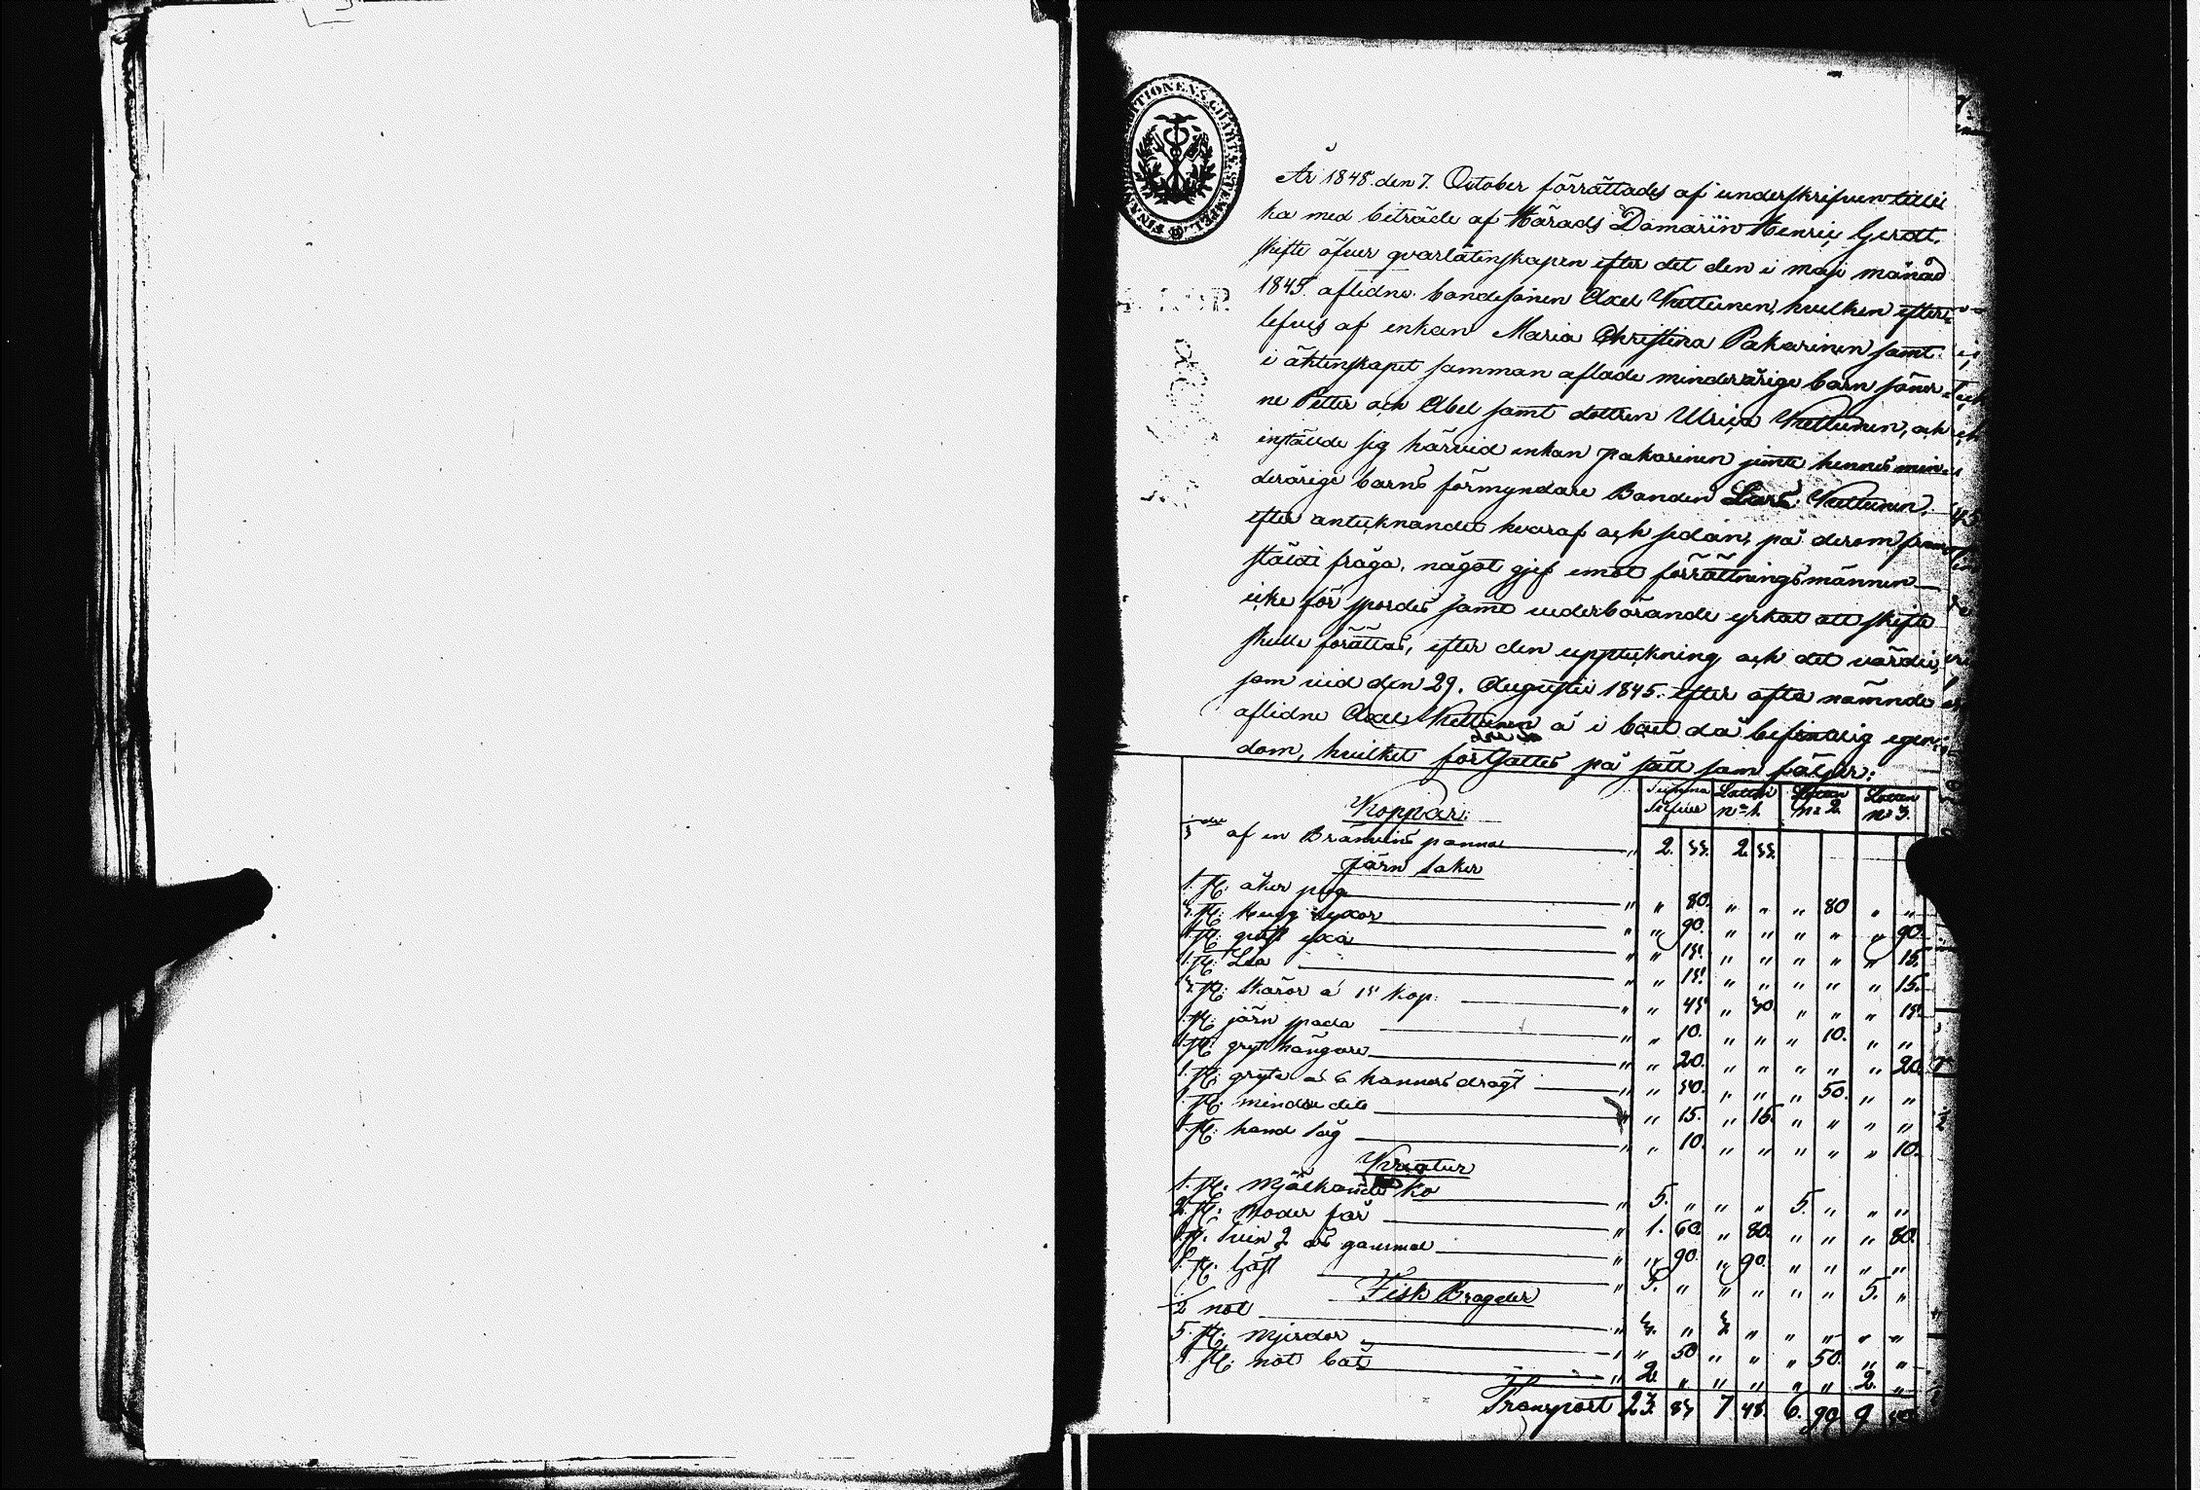 FINANCE EXPEDITIONENS CHARTÆ STEMPEL
År 1848 den 7. October förrättades af underskrifven tillli
ka med biträde af Härads Domarin Henric Gerdt,
skifte öfver qvarlåtenskapen efter det den i maji månad
1845 aflidne bondesonen Axel Kettunen, hvilken efter
lefves af enkan Maria Christina Pakarinen samt
i äktenskapet samman aflade minderårige barn söner
ne Petter och Abel samt dottren Ulrica Kettunen, och
instälde sig härvid enkan Pakarinen jemte hennes min
derårige barns förmyndare Bonden Lars Kettunen,
efter antecknandet hvaraf och sedan, på derom fram
stäldt fråga, något gjef emot förrättningsmännen
icke för spordes samt vederbörande yrkat att skifte
skulle förättas, efter den uppteckning och det värde,
som vid den 29. Augustii 1845. efter ofta nämnde
aflidne Axel Kettunen å i boet då befintelig egen
dom, hvilket fortsattes på sätt som följer:
Koppar: Summa Silfver Lotten No 1. Lotten No 2. Lotten No 3.
af en Bränvins panna " 2. 33. 2 33.
Järn saker
1. st. åker plog " " 80. " " " 80 " "
3. st. hugg yxor " " 90. " " " " " 90.
1. st. gräft yxa " " 15. " " " " " 15.
1. st. Lia " " 15. " " " " " 15.
3. st. skäror á 15 kop. " " 45 " 30 " " " 15.
1. st. järn spada " " 10. " " " 10. " "
1. st. gryt hängare " " 20. " " " " " 20.
1. st. gryta á 6 kannors drägt " " 50. " " " 50. " "
1. st. mindre dito " " 15. " 15. " " " "
1. st. hand såg " " 10. " " " " " 10.
Kreatur
1. st. Mjölkande ko " 5. " " " 5. " " "
2. st. Moder får " 1. 60. " 80. " " " 80.
1. st. svin 2 års gammal " " 90. " 90. " " " "
1. st. häst " 5. " " " " " 5. "
Fisk Bragder
1/2 not " 3. " 3. " " " " "
5. st. Mjerdor " " 50 " " " 50. " "
1 st. not båt " 2. " " " " " 2. "
Transport 23. 83 7. 48. 6. 90 9